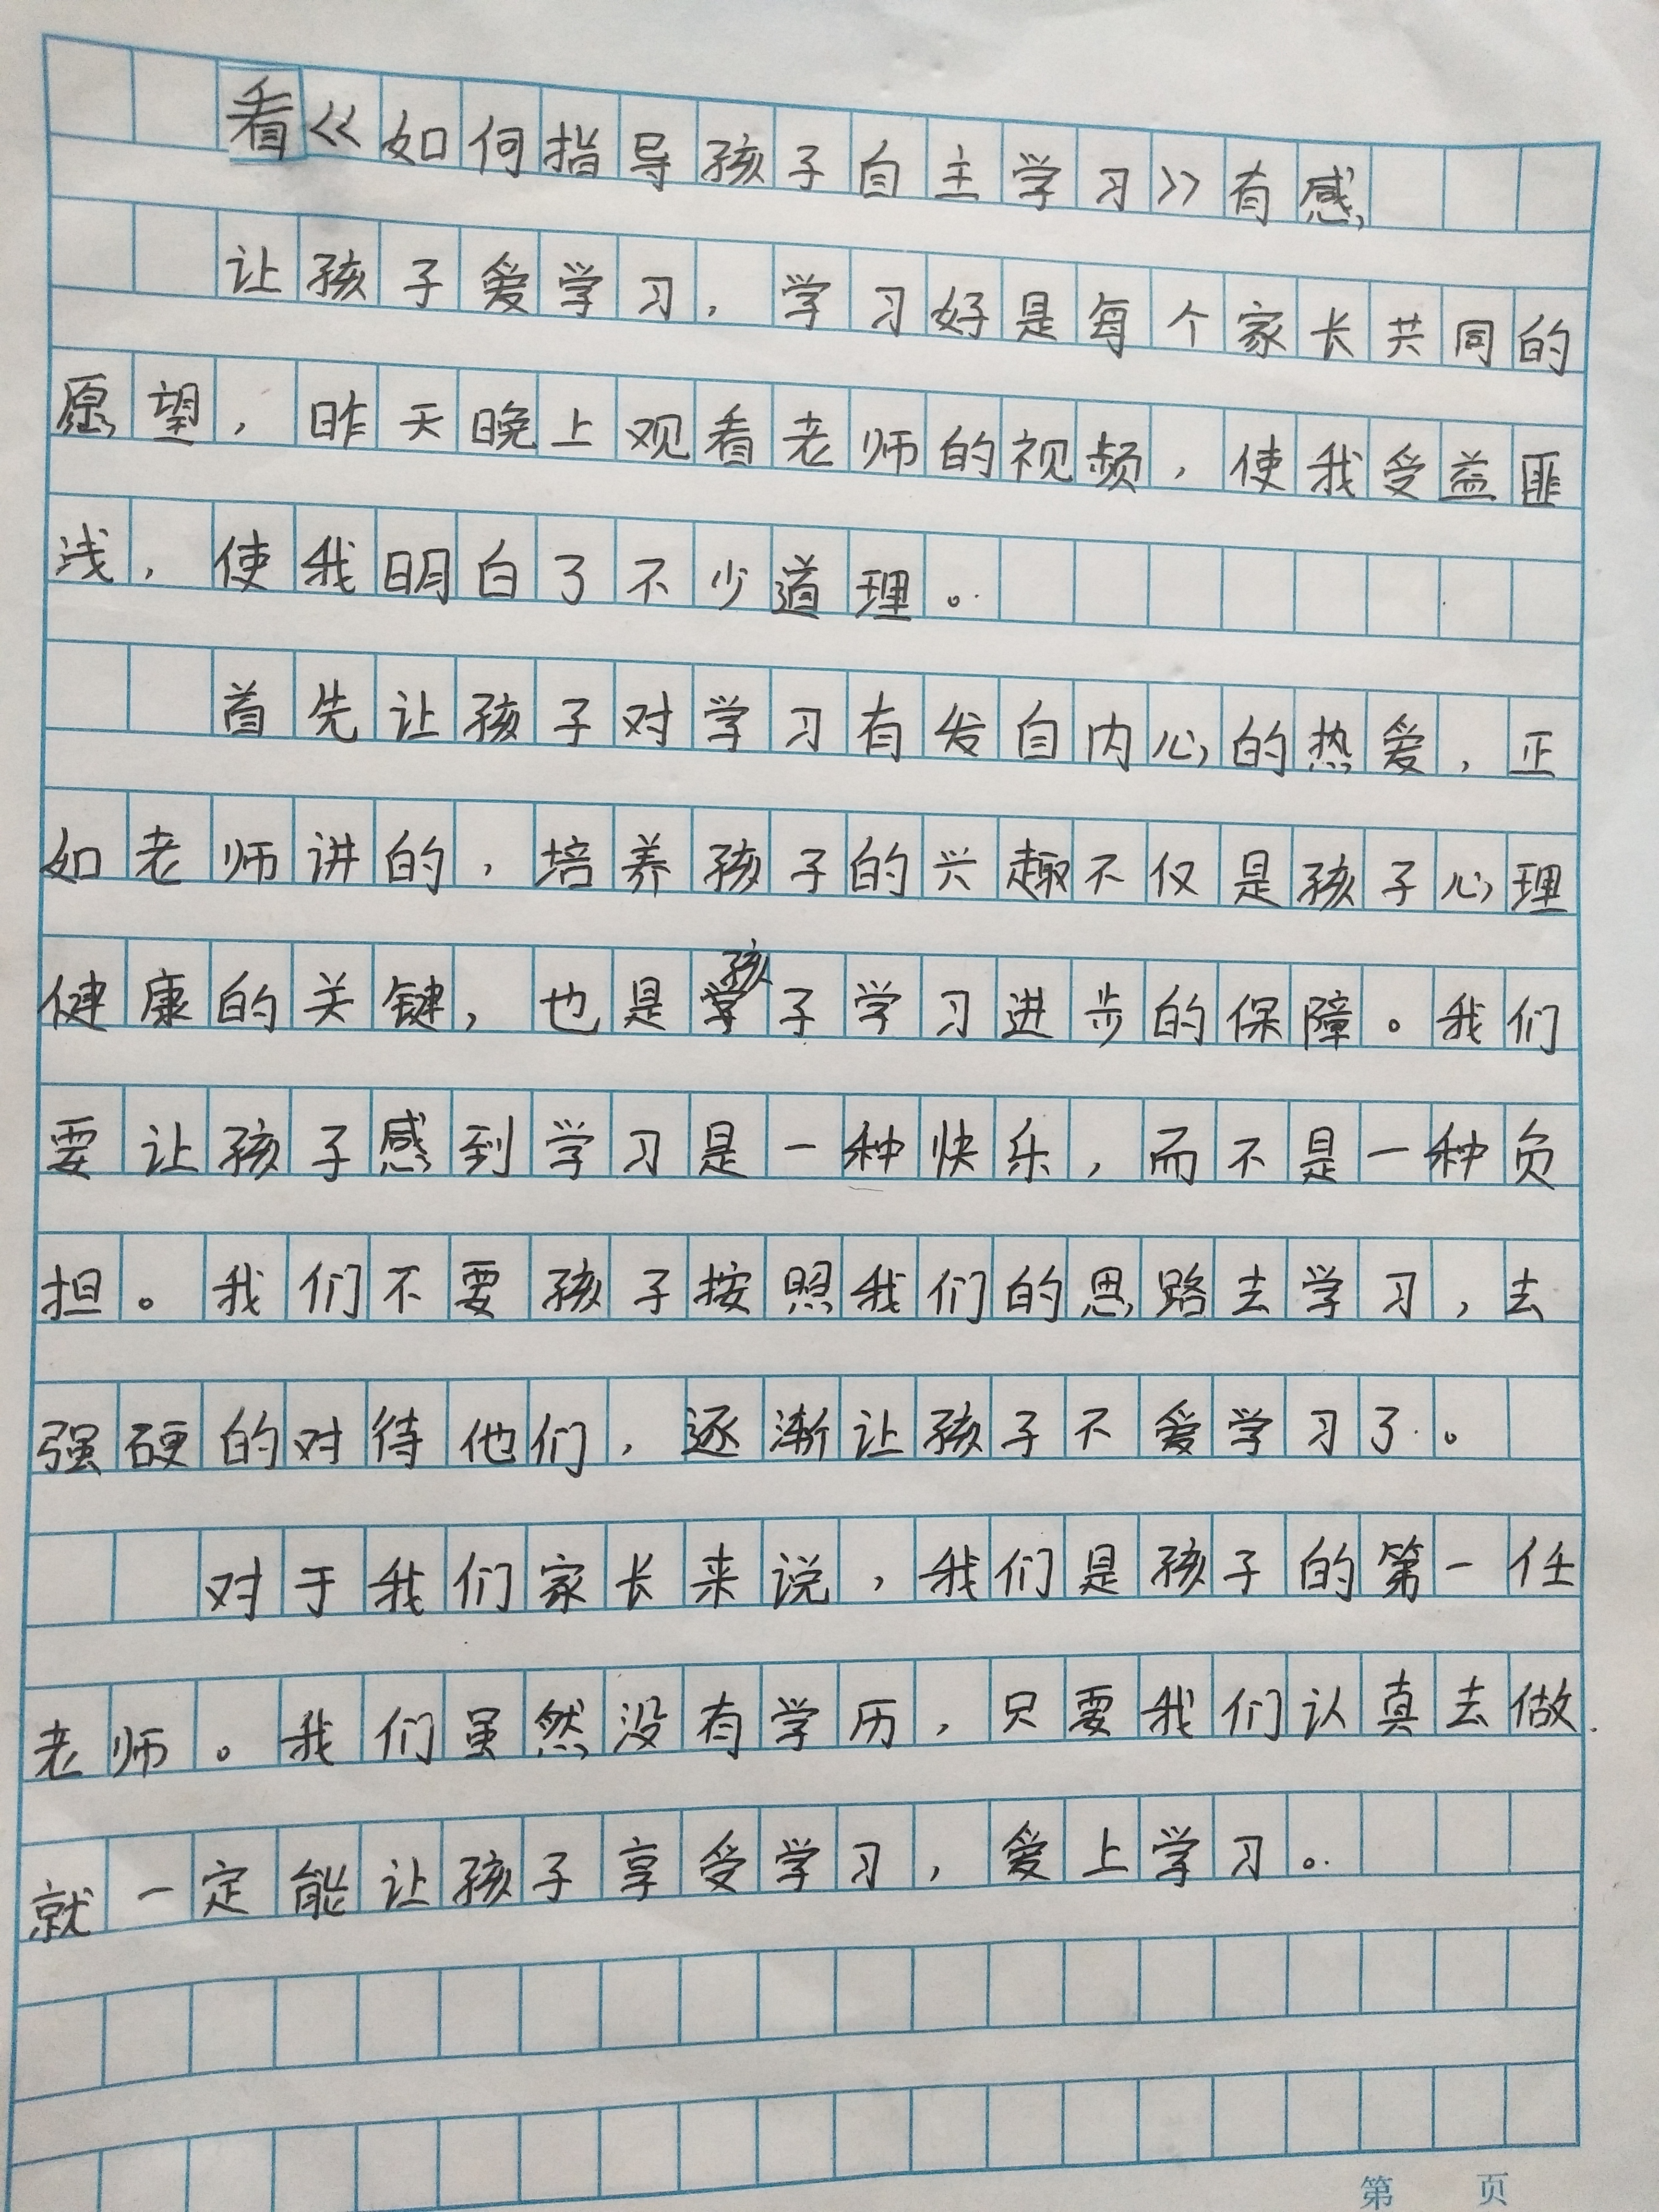 看《如何指导孩子自主学习》有感
让孩子爱学习，学习好是每个家长共同的
愿望，昨天晚上观看老师的视频，使我受益匪
浅，使我明白了不少道理。
首先让孩子对学习有发自内心的热爱，正
如老师讲的，培养孩子的兴趣不仅是孩子心理
健康的关键，也是孩子学习进步的保障。我们
要让孩子感到学习是一种快乐，而不是一种负
担。我们不要孩子按照我们的思路去学习，去
强硬的对待他们，逐渐让孩子不爱学习了。
对于我们家长来说，我们是孩子的第一任
老师。我们虽然没有学历，只要我们认真去做.
就一定能让孩子享受学习，爱上学习。
第 页